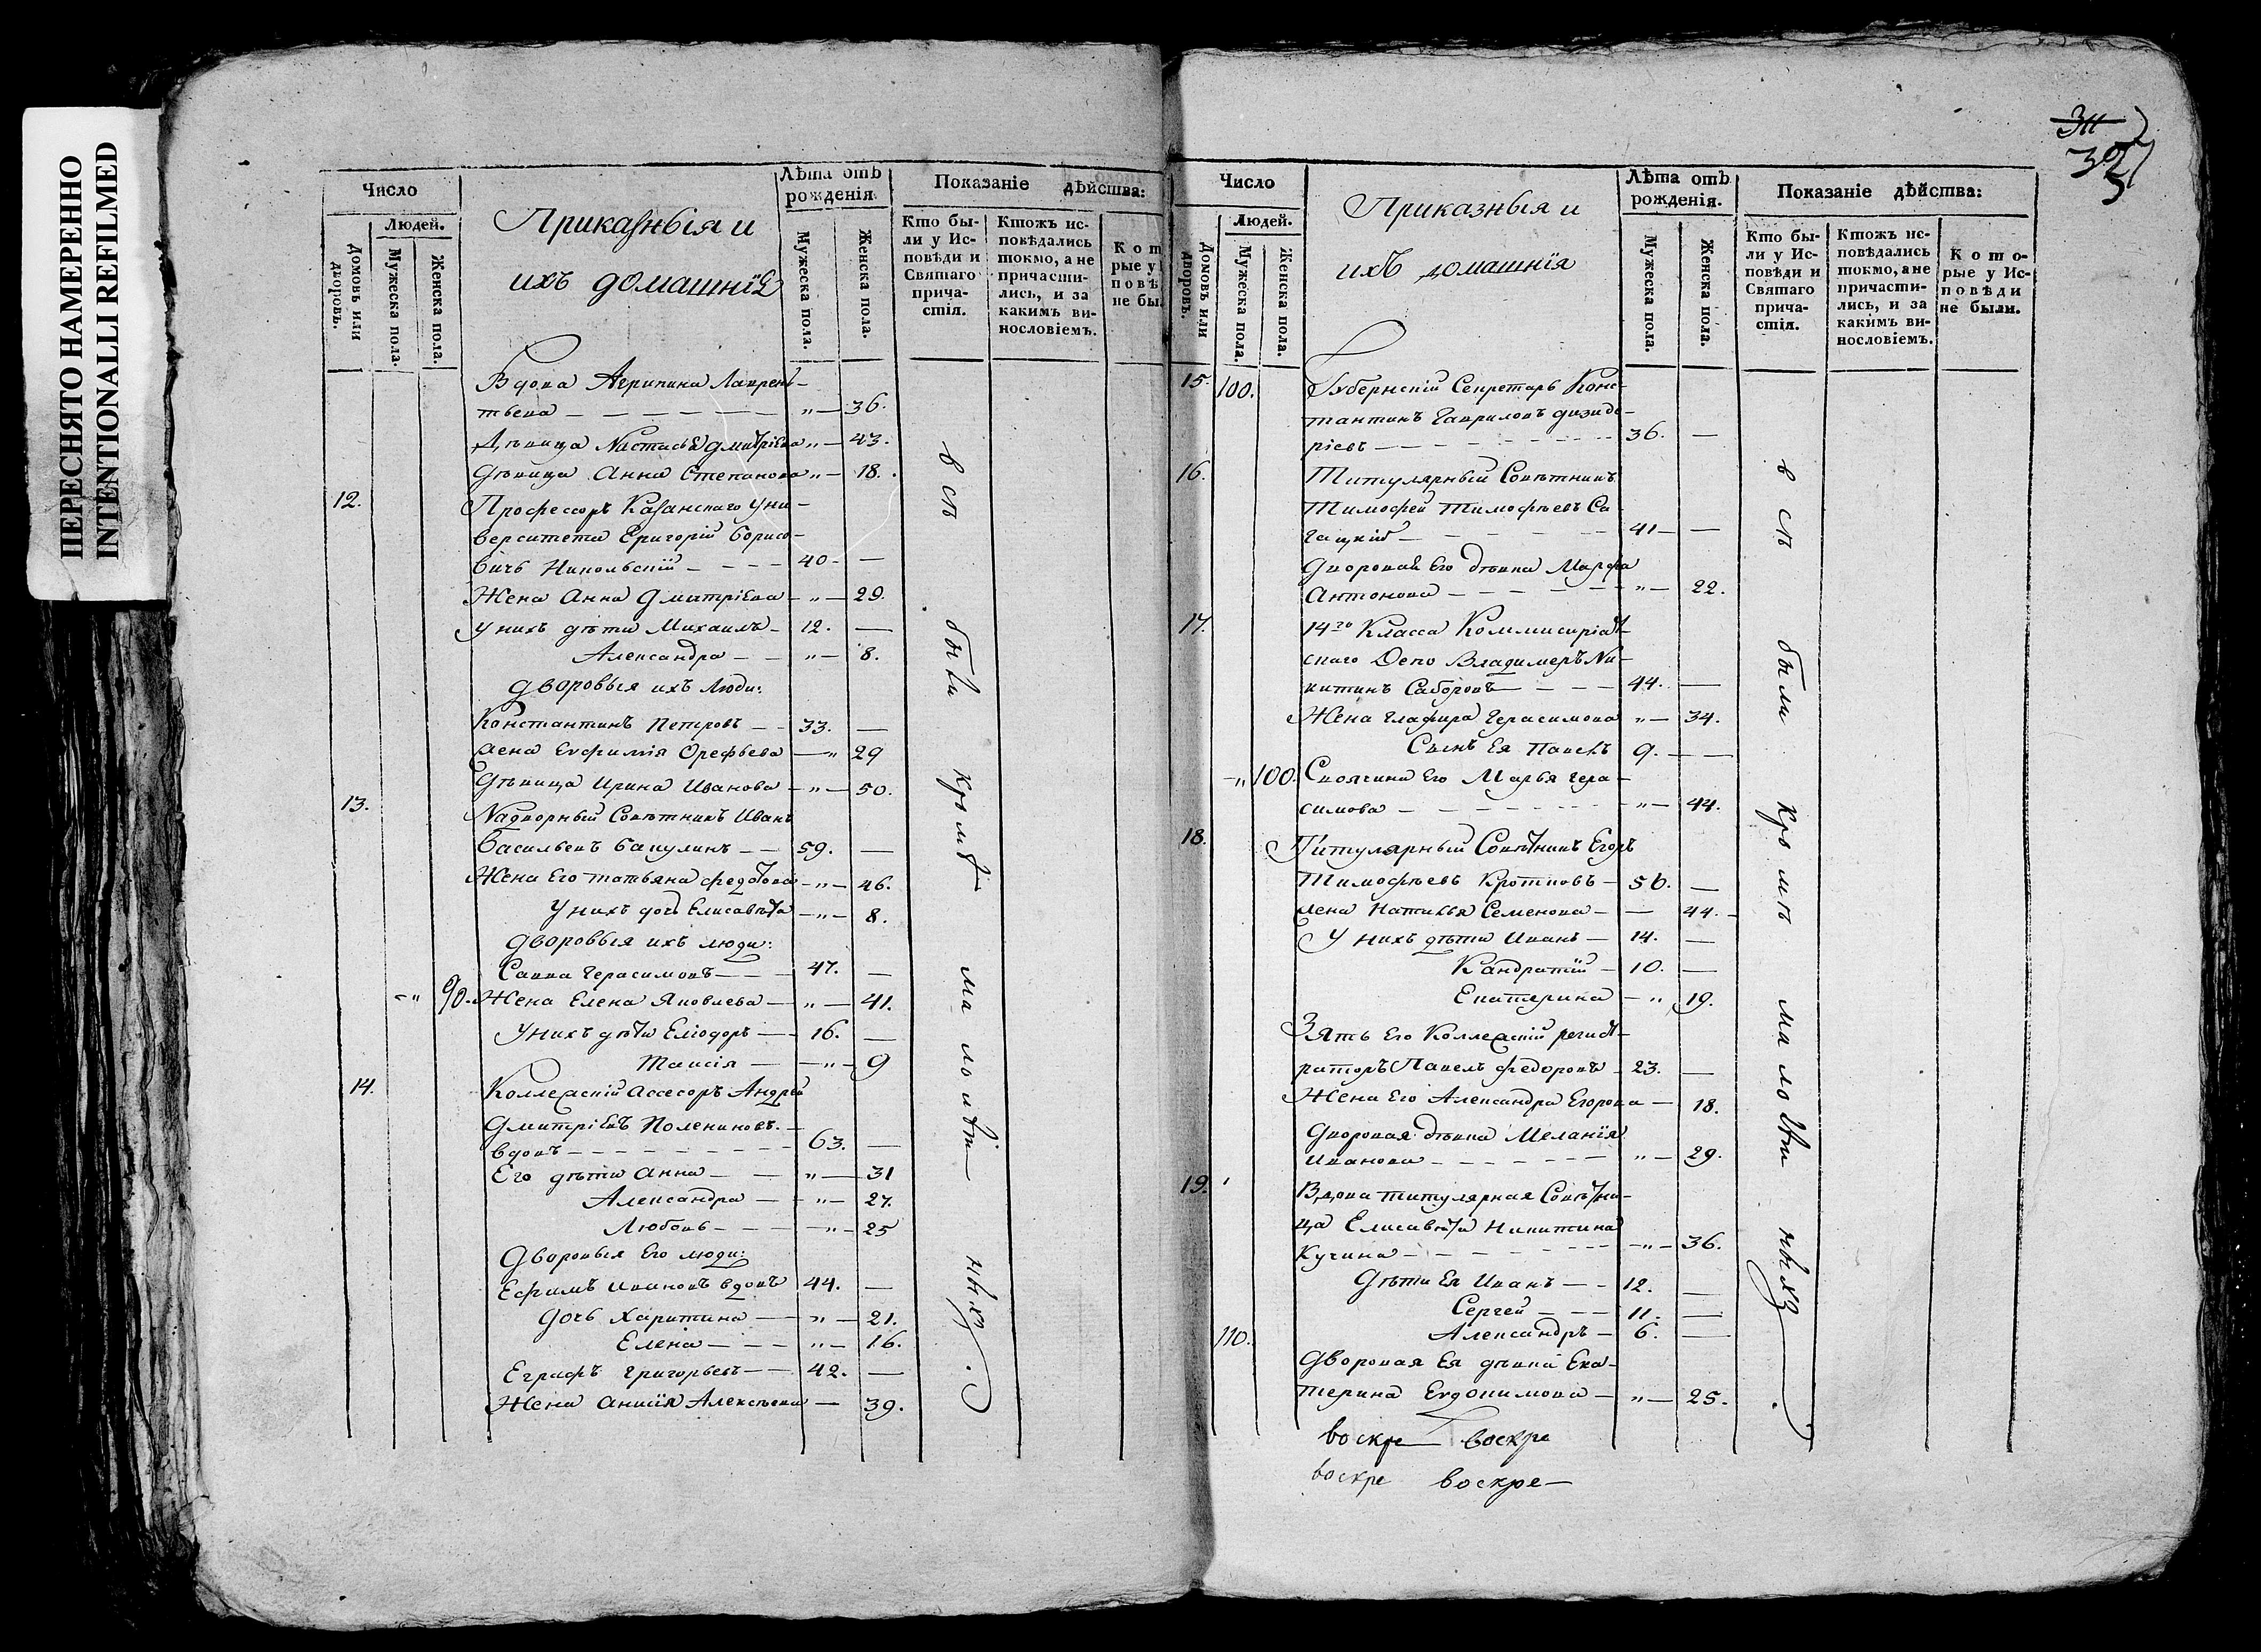 ПЕРЕСНЯТО НАМЕРЕННО
INTENTIONALLI REFILMED
Число
Людей.
Домовъ или дворовъ.
Мужеска пола.
Женска пола.
Приказныя и
ихъ домашнія
Лѣта отъ рожденія.
Мужеска пола.
Женска пола.
Показаніе дѣйства:
Кто бы-
ли у Ис-
повѣди и
Святаго
прича-
стія.
Ктожъ ис-
повѣдались
токмо, а не
причасти-
лись, и за
какимъ ви-
нословіемъ.
Кот
рые у
повѣ
не бы
Вдова Агрипина Лаврен-
тьева — „ — 36.
Дѣвица Настасья Дмитріева „ — 43.
Дѣвица Анна Степанова „ — 18.
12. Профессоръ Казанскаго Уни-
верситета Григорій Борисо-
вичъ Никольскій — 40 —
Жена Анна Дмитріева — „ — 29.
У нихъ дѣти Михаилъ — 12. —
Александра — „ — 8.
Дворовыя ихъ люди:
Константинъ Петровъ — 33. —
Жена Евфимія Орефьева — „ 29
Дѣвица Ирина Иванова — „ — 50.
13. Надворный Совѣтникъ Иванъ
Васильевъ Бакулинъ — 59. —
Жена Его Татьяна Федотова — „ — 46.
У нихъ дочь Елисавета — „ — 8.
Дворовыя ихъ люди:
Савва Герасимовъ — 47. —
„ 90. Жена Елена Яковлева — „ — 41.
У нихъ дѣти Еліодоръ — 16. —
Таисія — „ — 9
14. Коллежскій Ассесоръ Андрей
Дмитріевъ Полениновъ.
вдовъ — 63. —
Его дѣти Анна — „ — 31
Александра — „ — 27.
Любовь — „ — 25
Дворовыя Его люди:
Ефимъ Ивановъ вдовъ 44. —
Дочь Харитина — „ — 21.
Елена — „ — 16.
Еграфъ Григорьевъ — 42. —
Жена Анисія Алексѣева — 39.
всѣ были кромѣ малолѣтныхъ.
311
327
Число
Людей.
Домовъ или дворовъ.
Мужеска пола.
Женска пола.
Приказныя и
ихъ домашнія
Лѣта отъ рожденія.
Мужеска пола.
Женска пола.
Показаніе дѣйства:
Кто бы-
ли у Ис-
повѣди и
Святаго
прича-
стія.
Ктожъ ис-
повѣдались
токмо, а не
причасти-
лись, и за
какимъ ви-
нословіемъ.
Кото-
рые у Ис-
повѣди
не были.
15. 100. Губернскій Секретарь Конс-
тантинъ Гавриловъ Дизиде-
ріевъ — 36. —
16. Титулярный Совѣтникъ
Тимофей Тимофѣевъ Са-
гацкій — 41 —
Дворовая Его дѣвка Марфа
Антонова — „ — 22.
17. 14го Класса Коммисаріат-
скаго Депо Владимеръ Ни-
китинъ Саборовъ — 44. —
Жена Глафира Герасимова „ — 34.
Сынъ Ея Павелъ 9. —
„ 100. Своячина Его Марья Гера-
симова — „ — 44.
18. Титулярный Совѣтникъ Егоръ
Тимофѣевъ Кротковъ — 56. —
Жена Наталья Семенова — 44.
У нихъ дѣти Иванъ — 14. —
Кандратій — 10. —
Екатерина — „ 19.
Зять Его Коллежскій регист-
раторъ Павелъ Федоровъ — 23. —
Жена Его Александра Егорова — 18.
Дворовая дѣвка Меланія
Иванова — „ — 29.
19. Вдова титулярная Совѣтни-
ца Елисавета Никитина
Кучина — „ — 36.
Дѣти Ея Иванъ — 12. —
Сергей — 11. —
110. Александръ — 6. —
Дворовая Ея дѣвка Ека-
терина Евдокимова — „ — 25.
всѣ были кромѣ малолѣтныхъ.
воскре воскре
воскре воскре